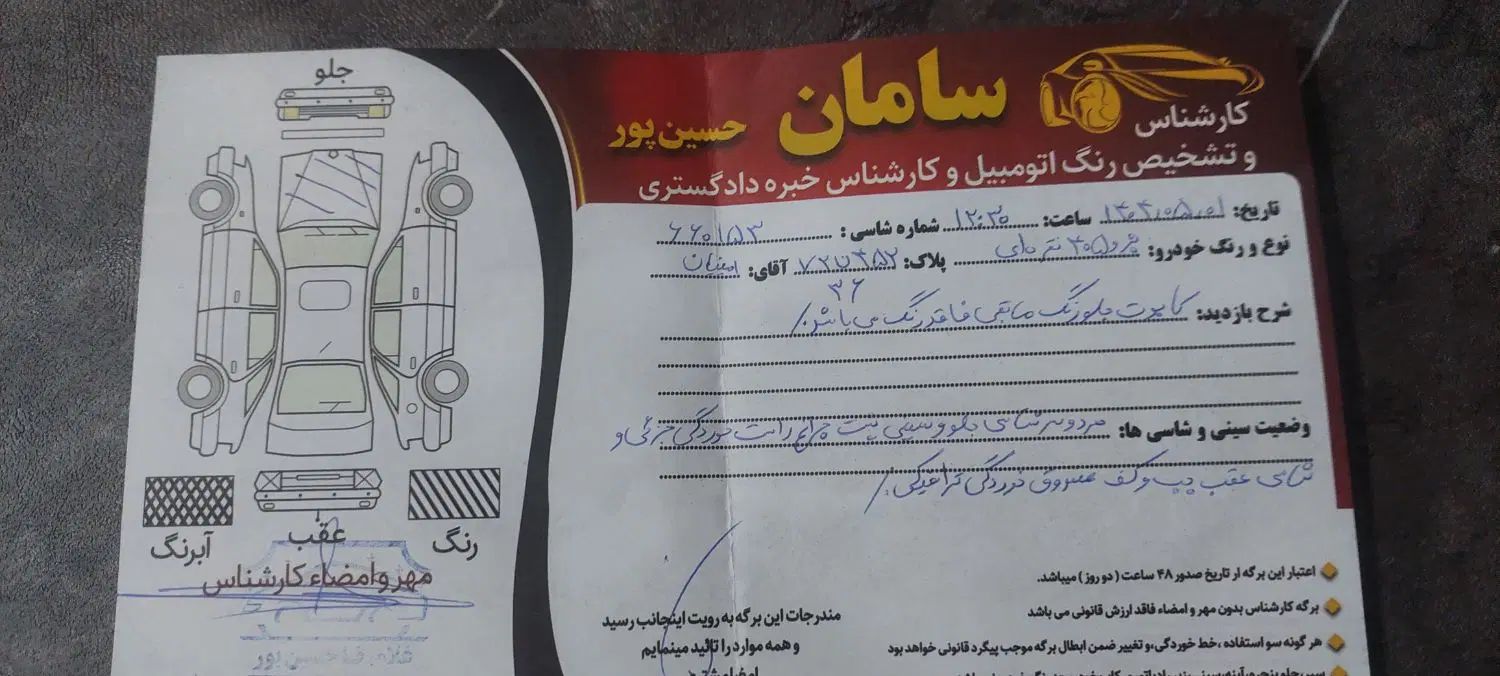 جلو
سامان حسین‌پور
کارشناس
و تشخیص رنگ اتومبیل و کارشناس خبره دادگستری
تاریخ: ۱۴۰۴،۰۵،۰۱ ساعت: ۱۲:۳۰ شماره شاسی: ۶۶۰۱۵۳
نوع و رنگ خودرو: پژو ۴۰۵ نقره‌ای پلاک: آقای:
۳۶
شرح بازدید: کاپوت جلو رنگ مابقی فاقد رنگ می باشد
وضعیت سینی و شاسی ها: هر دو سر شاسی جلو و سینی پشت چراغ راست خوردگی جزئی و
شاسی عقب چپ و کف صندوق خوردگی ترافیکی
آبرنگ
عقب
رنگ
مهر و امضاء کارشناس
غلامرضا حسین پور
مندرجات این برگه به رویت اینجانب رسید
و همه موارد را تائید مینمایم
اعتبار این برگه از تاریخ صدور ۴۸ ساعت ( دو روز ) میباشد.
برگه کارشناس بدون مهر و امضاء فاقد ارزش قانونی می باشد
هر گونه سو استفاده ،خط خوردگی،و تغییر ضمن ابطال برگه موجب پیگرد قانونی خواهد بود